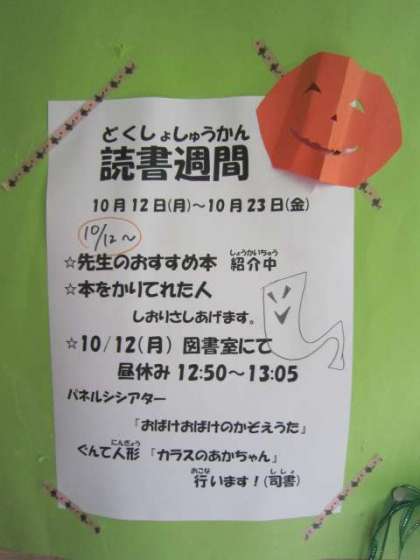 どくしょしゅうかん
読書週間
10月12日(月)～10月23日(金)
10/12～
しょうかいちゅう
☆先生のおすすめ本 紹介中
☆本をかりてれた人
しおりさしあげます。
☆10/12(月) 図書室にて
昼休み 12:50～13:05
パネルシシアター
「おばけおばけのかぞえうた」
にんぎょう
ぐんて人形「カラスのあかちゃん」
おこな ししょ
行います！(司書)